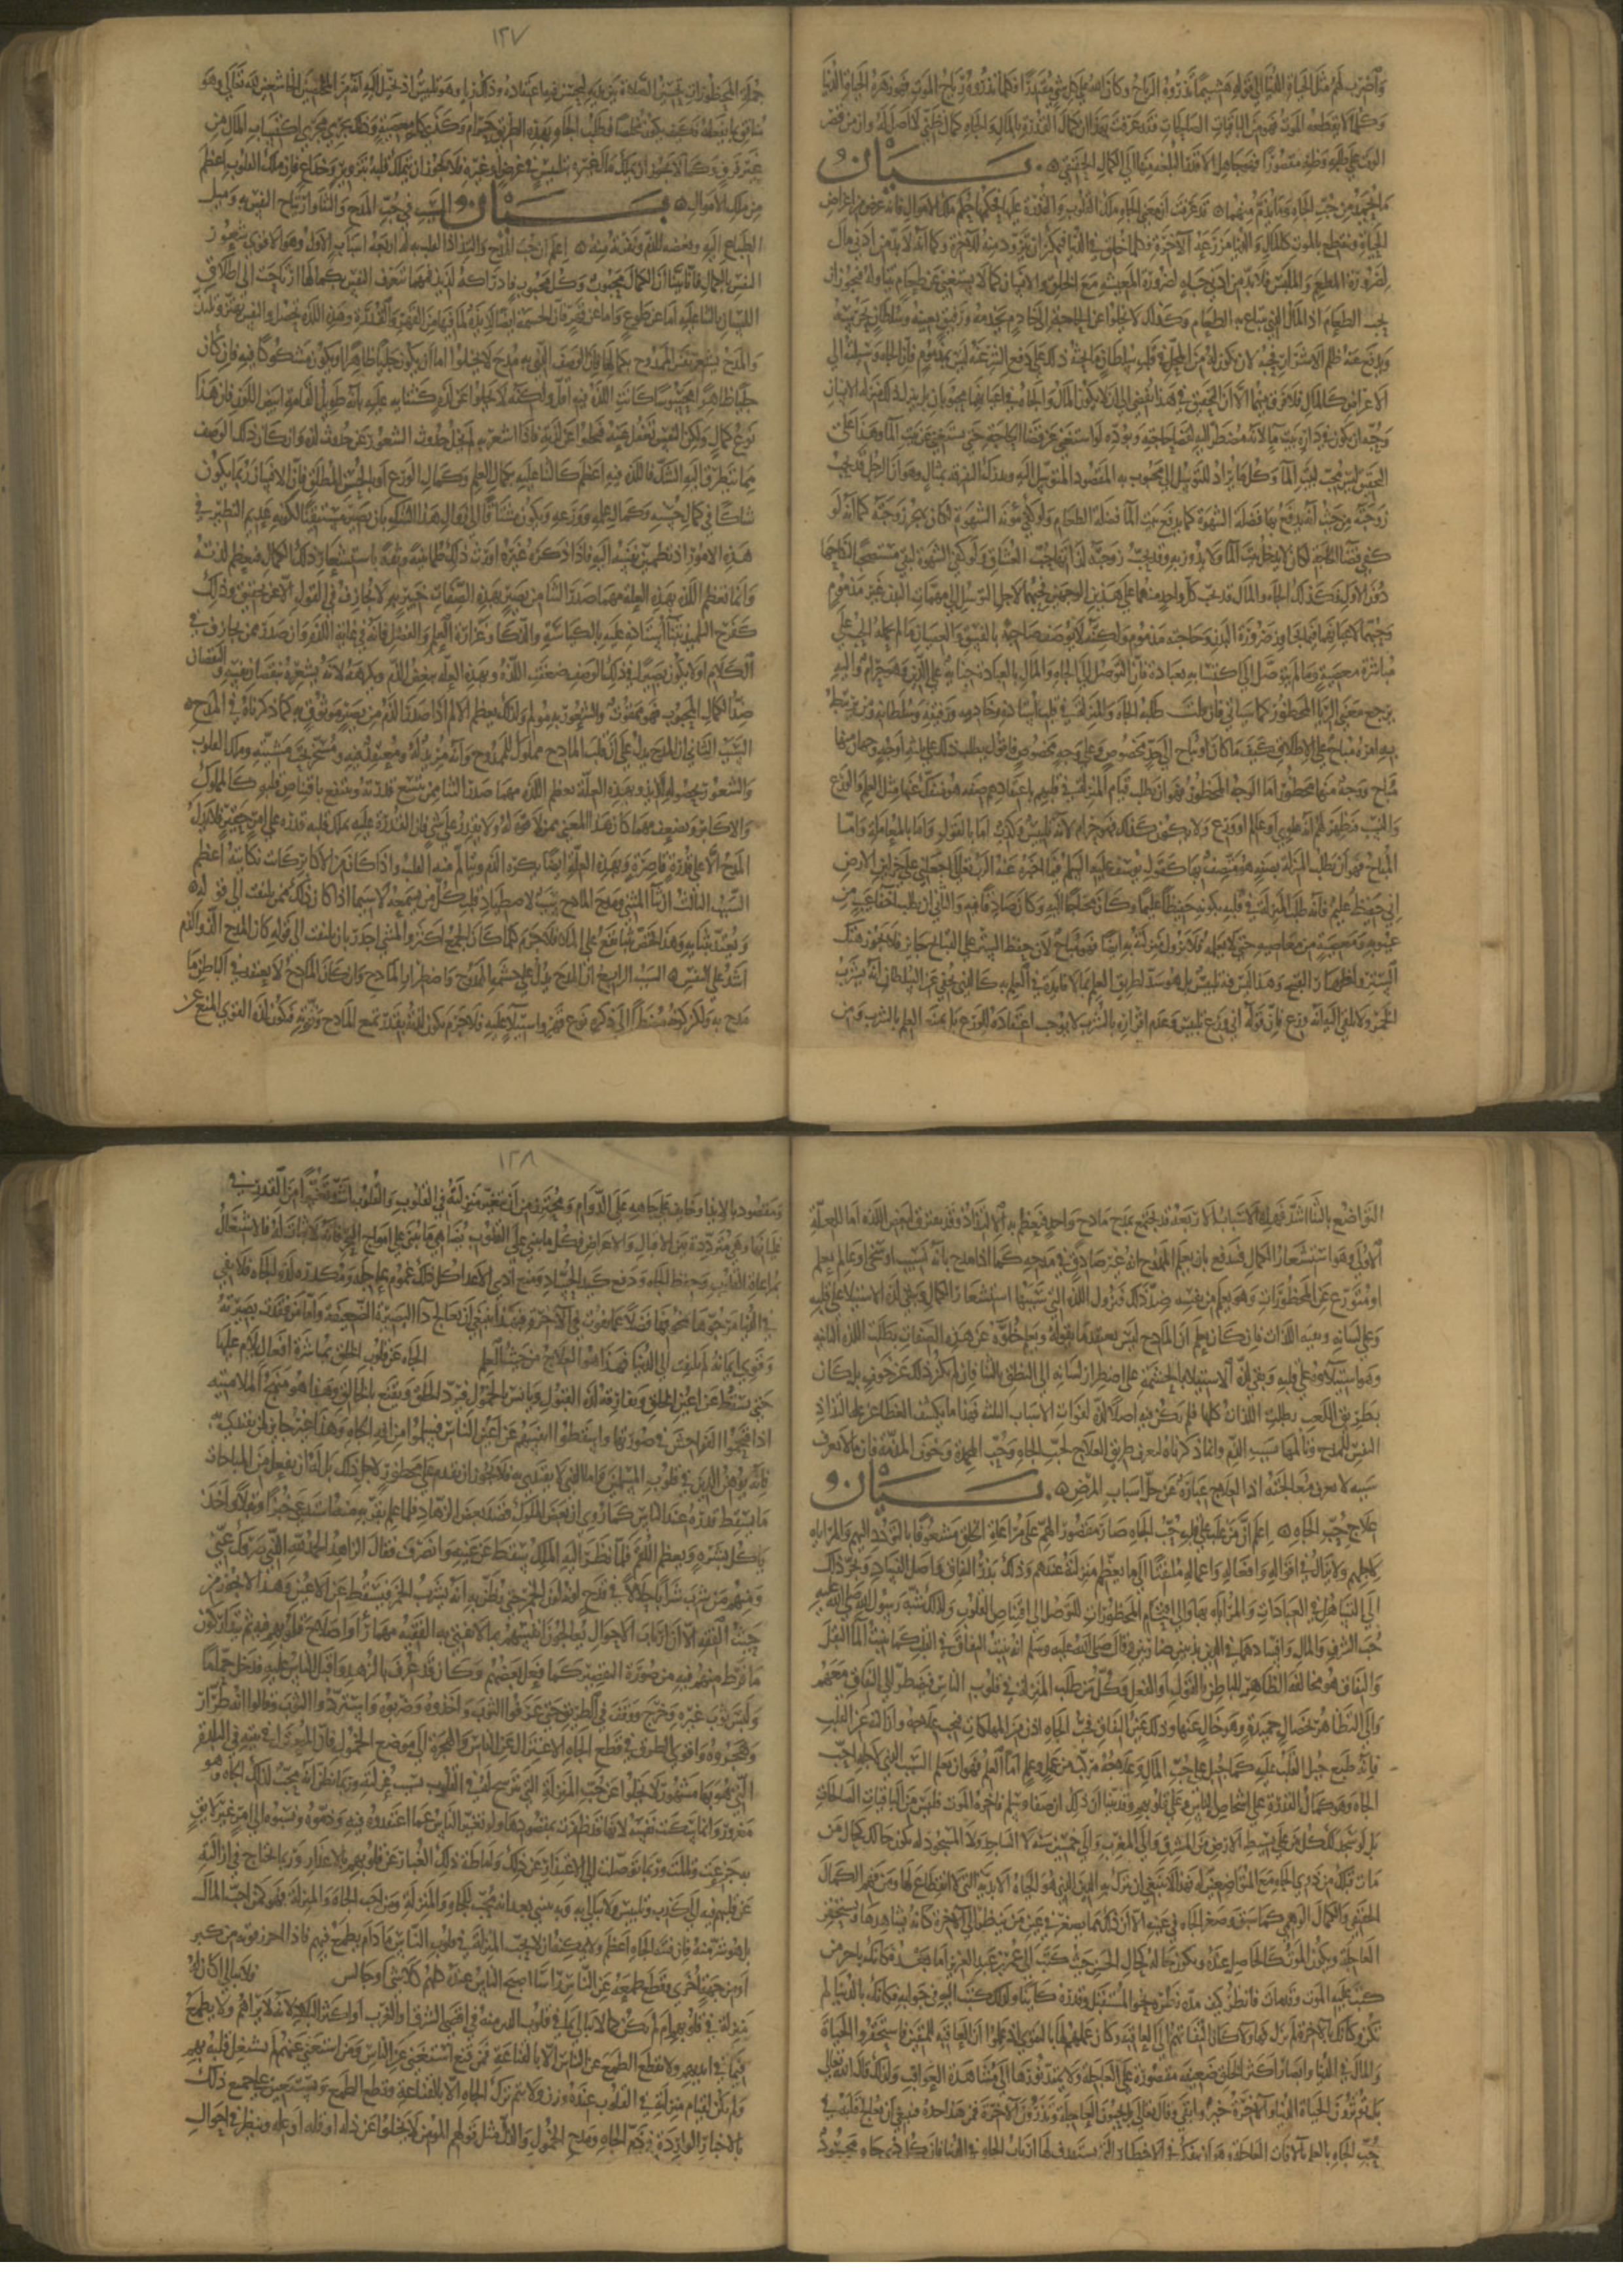 واضرب لهم مثل الحياة الدنيا الى قوله هشيما تذروه الرياح وكان الله على كل شي مقتدرا فكلما تذروه رياح الموت فهو زهرة الحياة الدنيا
وكلما لا يقطعه الموت فهو من الباقيات الصالحات فقد عرفت بهذا ان كمال القدرة بالمال والجاه كمال ظني لا اصل له وان من قصر
الوقت على طلبه وظنه مقصودا فهو جاهل الا قدر البلغة منها الى الكمال الحقيقي بيان
ما يحمد من حب الجاه وما يذم مهما عرفت ان معنى الجاه ملك القلوب والقدرة عليها فحكمها حكم ملك الاموال فانه عرض من اعراض
الحياة وينقطع بالموت كالمال والدنيا مزرعة الاخرة فكلما خلق في الدنيا فيمكن ان يتزود منه للاخرة وكما انه لا بد من ادنى مال
لضرورة المطعم والملبس فلا بد من ادنى جاه لضرورة المعيشة مع الخلق والانسان كما لا يستغني عن طعام يتناوله فيجوز ان
يحب الطعام او المال الذي يبتاع به الطعام وكذلك لا يخلو عن الحاجة الى خادم يخدمه ورفيق يعينه وسلطان يحرسه
ويدفع عنه ظلم الاشرار
الاغراض كالمال فلا فرق بينهما الا ان التحقيق في هذا يفضي الى ان لا يكون المال والجاه في اعيانهما محبوبا
زوجته من حيث انه يدفع بها فضلة الشهوة كما يدفع ببيت الما فضلة الطعام ولو كفي مؤنة الشهوة لكان يهجر زوجته كما انه لو
كفي قضا الحاجة لكان لا يدخل بيت الما ولا يدور به وقد يحب زوجته لذاتها حب العشاق ولو كفي الشهوة لبقي مستصحبا لنكاحها
دون الاول فكذلك الجاه والمال قد يحب كل واحد منهما على هذين الوجهين فحبهما لاجل التوسل الى مهمات البدن غير مذموم
وحبهما لاعيانهما فيما يجاوز ضرورة البدن وحاجته مذموم ولكنه لا يوصف صاحبه بالفسق والعصيان ما لم يحمله الحب على
مباشرة معصية وما لم يتوصل الى اكتسابه بعبادة فان التوصل الى الجاه والمال بالعبادة جناية على الدين وهو حرام واليه
يرجع معنى الريا المحظور كما سياتي فان قلت طلبه الجاه والمنزلة في قلب استاذه وخادمه ورفيقه وسلطانه ومن يرتبط
به امره مباح على الاطلاق كيف ما كان او يباح الى حد مخصوص وعلى وجه مخصوص فاقول يطلب ذلك على ثلثة اوجه وجهان منها
مباح ووجه منها محظور اما الوجه المحظور فهو ان يطلب قيام المنزلة في قلوبهم باعتقادهم صفة هو منفك عنها مثل العلم والورع
والنسب فيظهر لهم انه علوي او عالم او ورع ولا يكون كذلك فهو حرام لانه تلبيس وكذب اما بالقول واما بالمعاملة واما
المباح فهو ان يطلب المنزلة بصفة هو متصف بها كقول يوسف عليه السلم فيما اخبره عنه الرب تعالى اجعلني على خزاين الارض
اني حفيظ عليم فانه طلب المنزلة في قلبه بكونه حفيظا عليما وكان محتاجا اليه وكان صادقا فيه والثاني ان يطلب اخفا عيب من
عيوبه ومعصية من معاصيه حتى لا يعلمه فلا تزول منزلته به ايضا فهو مباح لان حفظ الستر على القبايح جايز فلا يجوز هتك
الستر واظهار القبيح وهذا ليس فيه تلبيس بل هو سد لطريق العلم بما لا فايدة في العلم به كالذي يخفي عن السلطان انه يشرب
الخمر ولا يلقي اليه انه ورع فان قوله اني ورع تلبيس وعدم اقراره بالشرب لا يوجب اعتقاده للورع بل يمنع العلم بالشرب ومن
١٢٧
جملة المحظورات تحسين الصلاة بين يديه ليحسن فيه اعتقاده وذلك ريا وهو تلبيس اذ يخيل اليه انه من المخلصين الخاشعين لله تعالى وهو
مراي بما يفعله فكيف يكون مخلصا فطلب الجاه بهذه الطريق حرام وكذى بكل معصية وذلك يجري مجرى اكتساب المال من
غير فرق وكما لا يجوز ان يملك مال غيره بتلبيس في عوض او غيره فلا يجوز ان يملك قلبه بتزوير وخداع فان ملك القلوب اعظم
من ملك الاموال بيان السبب في حب المدح والثنا وارتياح النفس به وميل
الطباع اليه وبغضه للذم ونفرته منه اعلم ان حب المدح والتذاذ القلب به له اربعة اسباب الاول وهو الاقوى شعور
النفس بالكمال فانا بينا ان الكمال محبوب وكل محبوب فادراكه لذيذ فمهما شعرت النفس بكمالها ارتاحت
والمدح يشعر نفس الممدوح بكمالها فان الوصف الذي به مدح لا يخلوا اما ان يكون جليا ظاهرا او يكون مشكوكا فيه فان كان
جليا ظاهرا محسوسا كانت اللذة فيه اقل ولكنه لا يخلوا عن لذة كثنايه عليه بانه طويل القامة ابيض اللون فان هذا
نوع كمال ولكن النفس تغفل عنه فيخلوا عن لذته فاذا اشعر به لم يخل حدوث الشعور عن حدوث لذة وان كان ذلك الوصف
مما يتطرق اليه الشك فاللذة فيه اعظم كالثنا عليه بكمال العلم وكمال الورع او بالحسن المطلق فان الانسان ربما يكون
شاكا في كمال حسنه وكمال علمه وورعه ويكون مشتاقا الى زوال هذا الشك بان يصير مستيقنا لكونه عديم النظير في
هذه الامور اذ تطمين نفسه اليه فاذا ذكره غيره اورث ذلك طمانينة وثقة باستشعار ذلك الكمال فيعظم لذته
وانما تعظم اللذة بهذه العلة مهما صدر الثنا من بصير بهذه الصفات خبير بها لا يجازف في القول الا عن تحقيق وذلك
كفرح التلميذ بثنا استاذه عليه بالكياسة والذكا وغزارة العلم والفضل فانه في غاية اللذة وان صدر ممن يجازف في
الكلام او لا يكون بصيرا بذلك الوصف ضعفت اللذة وبهذه العلة يبغض الذم ويكرهه لانه يشعره بنقصان نفسه والنقصان
ضد الكمال المحبوب فهو ممقوت والشعور به مولم ولذلك يعظم الالم اذا صدر الذم من بصير موثوق به كما ذكرناه في المدح
السبب الثاني ان المدح يدل على ان قلب المادح مملوك للممدوح وانه مريد له ومعتقد فيه ومسخر تحت مشيته وملك القلوب
والشعور بحصوله لذيذ وبهذه العلة يعظم اللذة مهما صدر الثنا ممن يتسع قدرته وينتفع باقتناص قلبه كالملوك
والاكابر ويضعف مهما كان
المدح الا على قدرة قاصرة وبهذه العلة ايضا يكره الذم ويتالم منه القلب واذا كان من الاكابر كانت نكايته اعظم
السبب الثالث ان ثنا المثني ومدح المادح سبب لاصطياد قلب كل من يسمعه لا سيما اذا كان ذلك ممن يلتفت الى قوله
ويعتد بثنايه وهذا يختص بثنا يقع على الملا فلا جرم كلما كان الجمع اكثر والمثني اجدر بان يلتفت الى قوله كان المدح الذ والذم
اشد على النفس السبب الرابع ان المدح يدل على حشمة الممدوح واضطرار المادح وان كان المادح لا يعتقد في الباطن ما
التواضع بالثنا اشد فهذه الاسباب الاربعة قد تجتمع بمدح مادح واحد فيعظم به الالتذاذ وقد يفترق فينقص اللذة اما العلة
الاولى وهو استشعار الكمال فيندفع بان يعلم الممدوح انه غير صادق في مدحه كما اذا مدح بانه نسيب او سخي او عالم بعلم
او متورع عن المحظورات وهو يعلم من نفسه ضد ذلك فيزول اللذة التي سببها استشعار الكمال وتبقى لذة الاستيلا على قلبه
وعلى لسانه وبقية اللذات فان كان يعلم ان المادح ليس يعتقد ما يقوله ويعلم خلوه عن هذه الصفات بطلت اللذة الثانية
وهو استيلاوه على قلبه وبقي لذة الاستيلا بالحشمة على اضطرار لسانه الى النطق بالثنا فان لم يكن ذلك عن خوف بل كان
بطريق اللعب بطلت اللذات كلها فلم يكن فيه اصلا لذة لفوات الاسباب الثلثة فهذا ما يكشف الغطا عن علة التذاذ
النفس للمدح وتالمها بسبب الذم وانما ذكرناه لتعرف طريق العلاج لحب الجاه وحب المحمدة وخوف المذمة فان ما لا يعرف
سببه لا يمكن معالجته اذ العلاج عبارة عن حل اسباب المرض بيان
علاج حب الجاه اعلم ان من غلب على قلبه حب الجاه صار مقصور الهم على مراعاة الخلق مشغوفا بالتودد اليهم والمراياه
لاجلهم ولا يزال في اقواله وافعاله واعماله ملتفتا الى ما يعظم منزلته عندهم وذلك بذر النفاق واصل الفساد ويجر ذلك
الى التساهل في العبادات والمراياه بها والى اقتحام المحظورات للتوصل الى اقتناص القلوب ولذلك شبه رسول الله صلى الله عليه
حب الشرف والمال وافسادهما في الدين بذيبين ضاريين وقال صلى الله عليه وسلم انه ينبت النفاق في القلب كما ينبت الما البقل
والنفاق هو مخالفة الظاهر للباطن بالقول او الفعل وكل من طلب المنزلة في قلوب الناس فيضطر الى النفاق معهم
والى التظاهر بخصال حميدة وهو خال عنها وذلك عين النفاق فحب الجاه اذن من المهلكات فيجب علاجه وازالته عن القلب
فانه طبع جبل القلب عليه كما جبل على حب المال وعلاجه مركب من علم وعمل اما العلم فهو ان يعلم السبب الذي لاجله احب
الجاه وهو كمال القدرة على اشخاص الناس وعلى قلوبهم وقد بينا ان ذلك ان صفا وسلم فاخره الموت فليس من الباقيات الصالحات
بل لو سجد لك كل من على بسيط الارض من المشرق الى المغرب والى خمسين سنة لا الساجد ولا المسجود له يكون حالك كحال من
مات قبلك من ذوي الجاه مع المتواضعين له فهذا لا ينبغي ان يترك به الدين الذي هو الحياة الابدية التي لا انقطاع لها ومن فهم الكمال
الحقيقي والكمال الوهمي كما سبق صغر الجاه في عينه الا ان ذلك انما يصغر في عين من ينظر الى الاخرة كانه يشاهدها ويستحقر
العاجلة ويكون الموت كالحاصل عنده ويكون حاله كحال الحسن حيث كتب الى عمر بن عبد العزيز اما بعد فكانك باخر من
كتب عليه الموت وقد مات فانظر كيف مد نظره نحو المستقبل وقدره كاينا وكذلك كتب اليه في جوابه فكانك بالدنيا لم
تكن وكانك بالاخرة لم تزل
والمال في الدنيا وابصار اكثر الخلق ضعيفة مقصورة على العاجلة ولا يمتد نورها الى مشاهدة العواقب ولذلك قال الله تعالى
بل توثرون الحياة الدنيا والاخرة خير وابقى وقال تعالى بل تحبون العاجلة وتذرون الاخرة فمن هذا حده فينبغي ان يعالج قلبه في
حب الجاه بالعلم بالافات العاجلة وهو ان يتفكر في الاخطار التي يستهدف لها ارباب الجاه في الدنيا فان كل ذي جاه محسود
١٢٨
ومقصود بالايذا وخايف على جاهه على الدوام ومحترز من ان تتغير منزلته في القلوب والقلوب اشد تغيرا من القدر في
غليانها وهي مترددة بين الاقبال والاعراض فكل ما يبنى على القلوب يضاهي ما يبنى على امواج البحر فانه لا ثبات له والاشتغال
بمراعاة القلوب وحفظ الجاه ودفع كيد الحساد ومنع اذى الاعدا كل ذلك غموم عاجلة ومكدرة للذة الجاه فلا يفي
في الدنيا مرجوها بمخوفها فضلا عما يفوت في الاخرة فبهذا ينبغي ان يعالج البصيرة الضعيفة واما من نفذت بصيرته
وقوي ايمانه لم يلتفت الى الدنيا فهذا هو العلاج من حيث العلم الجاه عن قلوب الخلق بمباشرة افعال يلام عليها
حتى يسقط عن اعين الخلق ويفارقه لذة القبول ويانس بالخمول ويرد الخلق ويقنع بالخالق وهذا هو منهج الملامتيه
اذا اقتحموا الفواحش في صورتها واسقطوا انفسهم عن اعين الناس فسلموا من افة الجاه وهذا غير جايز لمن يقتدى به
فانه يوهن الدين في قلوب المسلمين واما الذي لا يقتدى به فلا يجوز ان يقدم على محظور لاجل ذلك بل له ان يفعل من المباحات
ما يسقط قدره عند الناس كما روي ان بعض الملوك قصد بعض الزهاد فلما علم بقربه منه استدعى خبزا وبقلا واخذ
ياكل بشره ويعظم اللقم فلما نظر اليه الملك سقط عن عينه وانصرف فقال الزاهد الحمد لله الذي صرفك عني
ومنهم من شرب شرابا حلالا في قدح لونه لون الخمر حتى يظن به انه يشرب الخمر فيسقط عن الاعين وهذا لا يجوز من
حيث الفقه الا ان ارباب الاحوال يعالجون انفسهم بما لا يفتي به الفقيه مهما راوا صلاح قلوبهم فيه ثم يتداركون
ما فرط منهم فيه من صورة التقصير كما فعل بعضهم وكان قد عرف بالزهد واقبل الناس عليه فدخل حماما
ولبس ثوب غيره وخرج ووقف في الطريق حتى عرفوا الثوب واخذوه وضربوه واستردوا الثوب وقالوا انه طرار
وهجروه واقوى الطرق في قطع الجاه الاعتزال عن الناس والهجرة الى موضع الخمول فان المعتزل في بيته في البلدة
التي هو بها مشهور لا يخلوا عن حب المنزلة التي ترسخ له في القلوب بسبب عزلته وربما يظن انه ليس محبا لذلك الجاه وهو
مغرور وانما سكنت نفسه لانها قد ظفرت بمقصودها ولو تغير الناس عما اعتقدوه فيه وذموه ونسبوه الى امر غير لايق
به جزعت وتالمت وربما توصلت الى الاعتذار عن ذلك واماطة ذلك الغبار عن قلوبهم بالاعذار وربما يحتاج في ازالته
عن قلوبهم فيه الى كذب وتلبيس ولا يبالي به وبه يتبين بعد انه محب للجاه والمنزلة ومن احب الجاه والمنزلة فهو كمن احب المال
بل هو شر منه فان فتنة الجاه اعظم ولا يمكنه ان لا يحب المنزلة في قلوب الناس ما دام يطمع فيهم فاذا احرز قوته من كسبه
او من جهة اخرى وقطع طمعه عن الناس راسا اصبح الناس عنده كلهم كالارذال ولا يبالي اكان له
منزلة في قلوبهم ام لم يكن كما لا يبالي بما في قلوب الذين هم منه في اقصى المشرق او المغرب لانه لا يراهم ولا يطمع
فيهم ولا يقطع الطمع عن الناس الا بالقناعة فمن قنع استغنى عن الناس ومن استغنى عنهم لم يشغل قلبه بهم
ولم يكن لقيام منزلته في القلوب عنده وزن ولا يتم ترك الجاه الا بالقناعة وقطع الطمع ويستعين على جميع ذلك
بالاخبار الواردة في ذم الجاه ومدح الخمول والذل مثل قولهم المومن لا يخلوا عن ذلة او قلة او علة وينظر في احوال